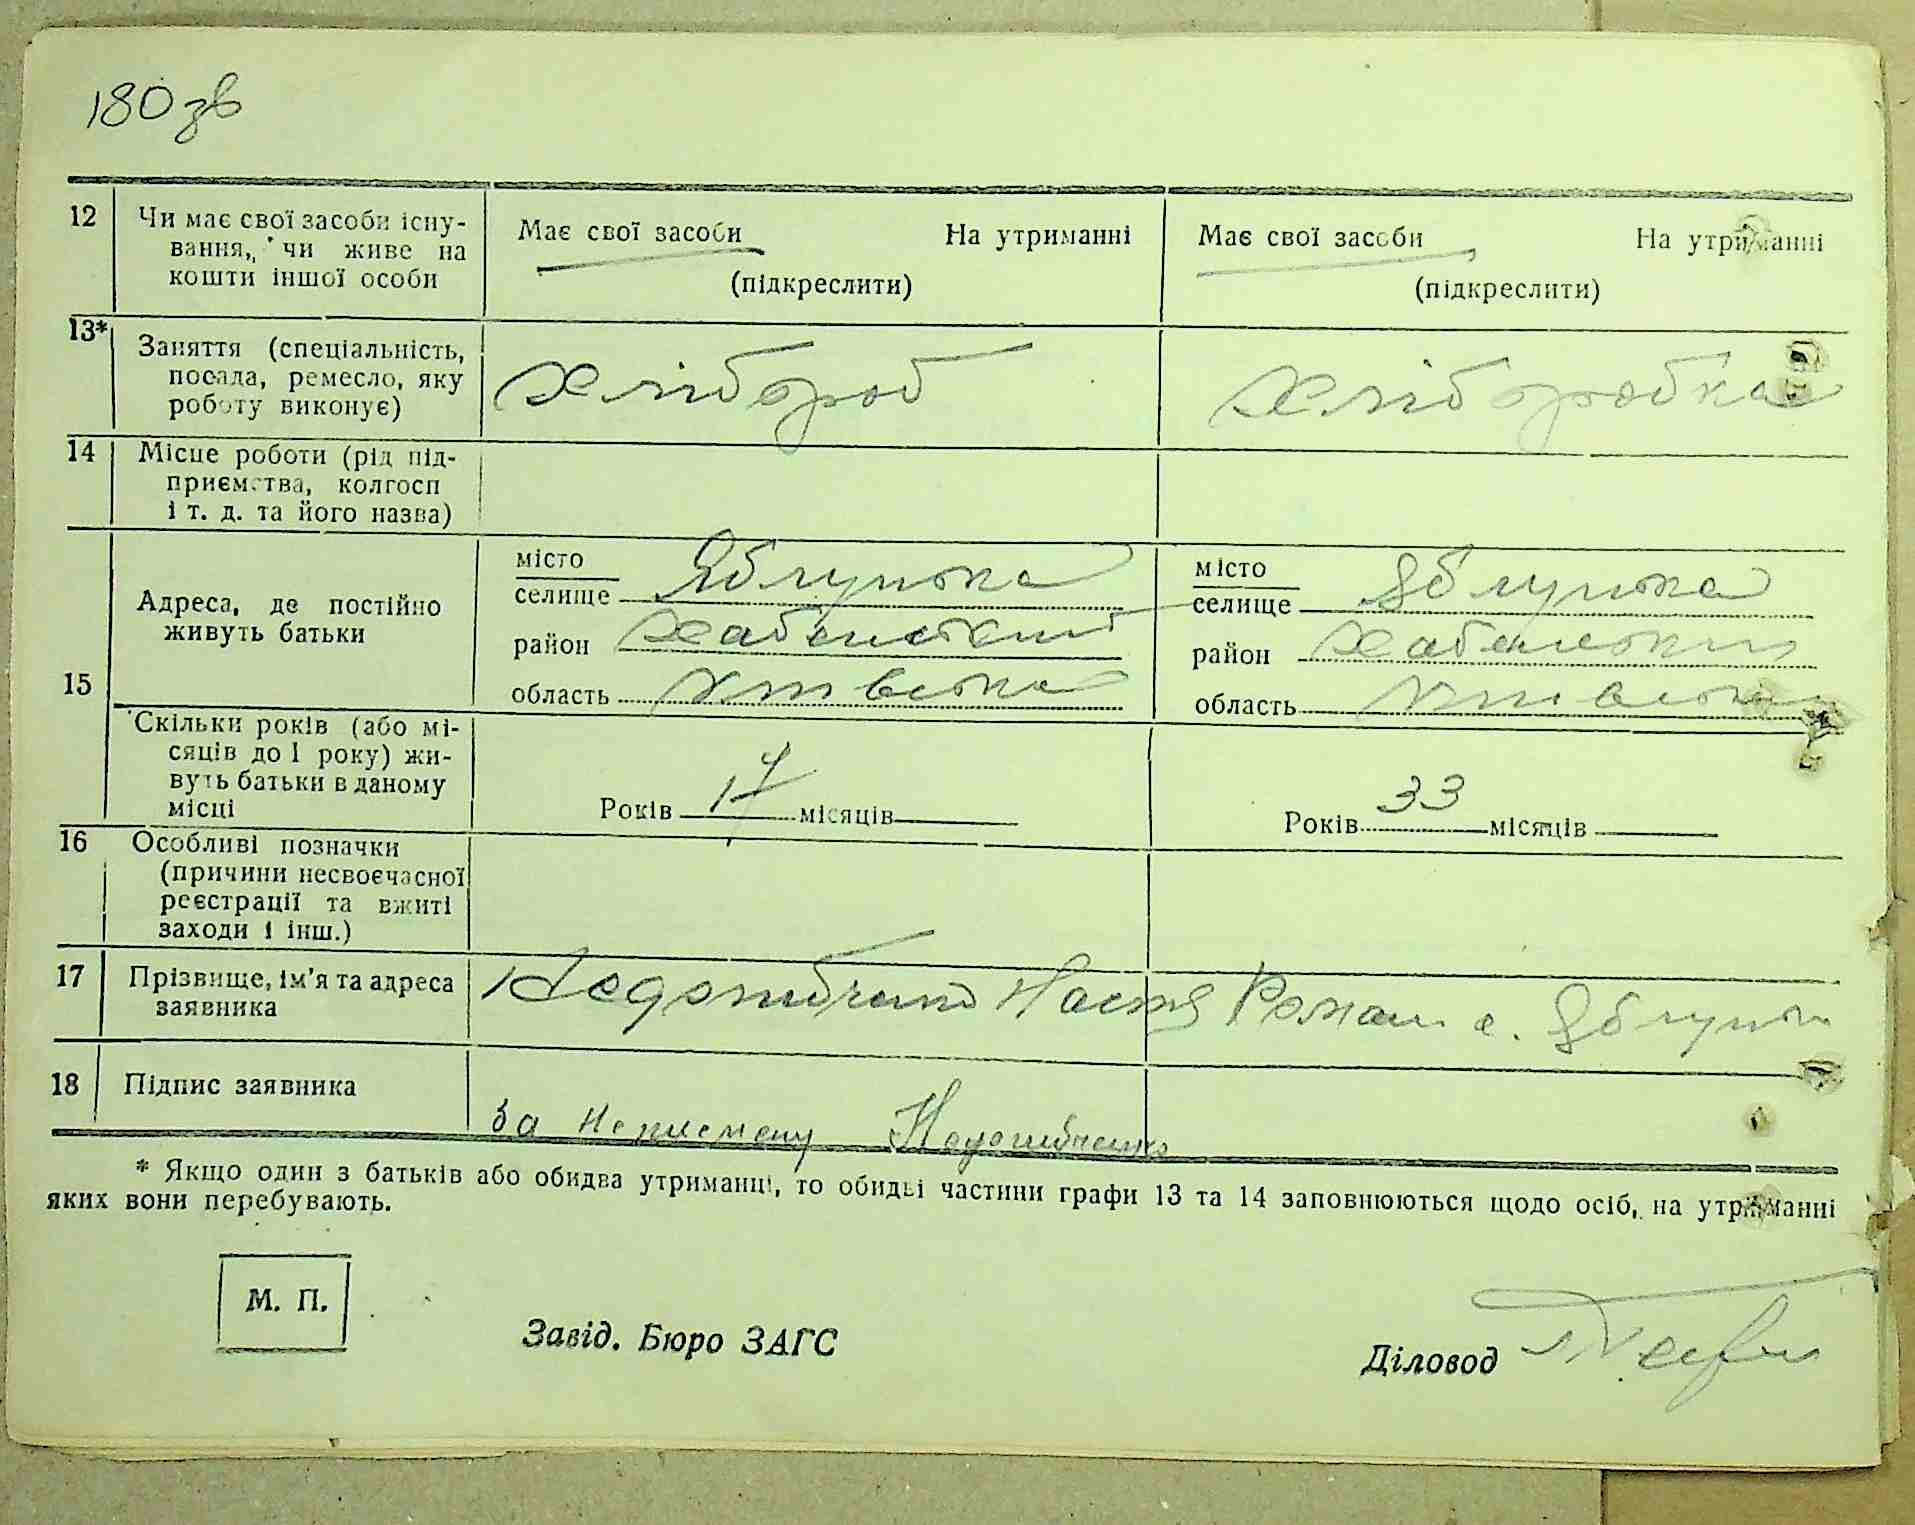 180 зв
12 Чи має свої засоби існу-
вання, чи живе на
кошти іншої особи
Має свої засоби На утриманні
(підкреслити)
Має свої засоби На утриманні
(підкреслити)
13* Заняття (спеціальність,
посада, ремесло, яку
роботу виконує)
Хлібороб
Хліборобка
14 Місце роботи (рід під-
приємства, колгосп
і т. д. та його назва)
15 Адреса, де постійно
живуть батьки
місто
селище Яблунька
район Хабенський
область Київська
місто
селище Яблунька
район Хабенський
область Київська
Скільки років (або мі-
сяців до 1 року) жи-
вуть батьки в даному
місці
Років 17 місяців
Років 33 місяців
16 Особливі позначки
(причини несвоєчасної
реєстрації та вжиті
заходи і інш.)
17 Прізвище, ім'я та адреса
заявника
Настя Роман с. Яблунь
18 Підпис заявника
За неписьмену
* Якщо один з батьків або обидва утриманці, то обидві частини графи 13 та 14 заповнюються щодо осіб, на утриманні
яких вони перебувають.
М. П.
Завід. Бюро ЗАГС
Діловод